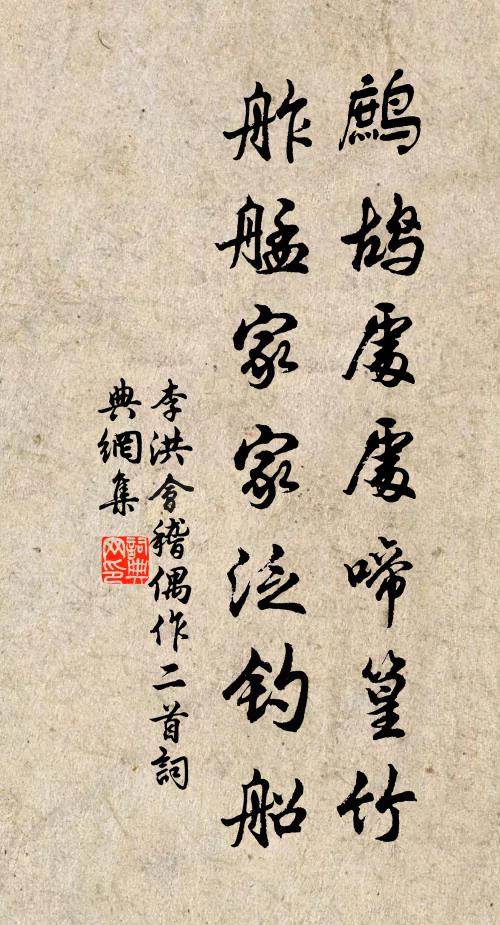 鷓鴣處處啼篁竹
舴艋家家泛釣船
李洪會稽偶作二首詞
典網集
詞典
网印